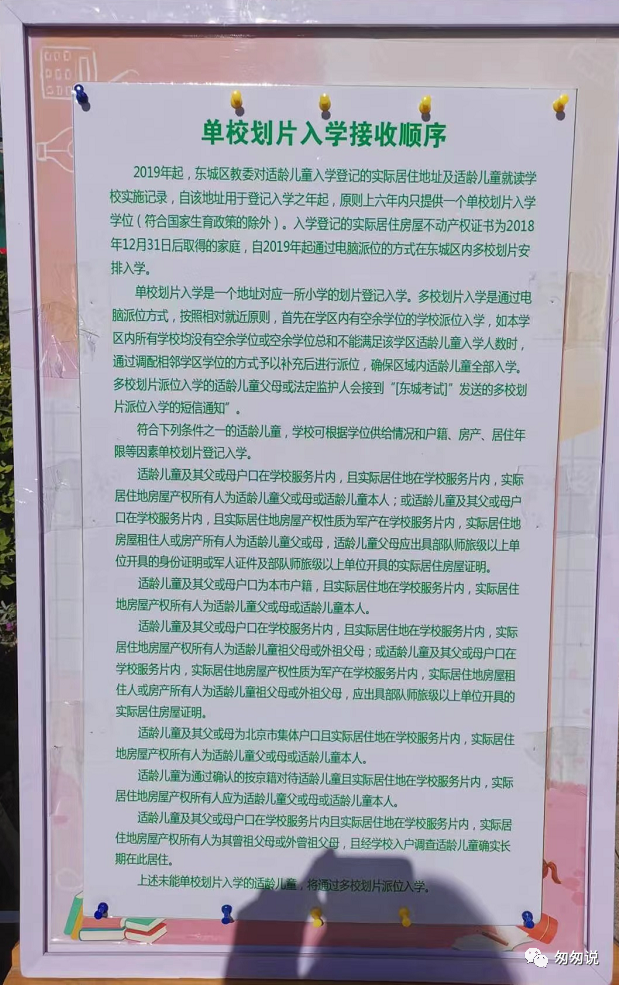 单校划片入学接收顺序
2019年起，东城区教委对适龄儿童入学登记的实际居住地址及适龄儿童就读学
校实施记录，自该地址用于登记入学之年起，原则上六年内只提供一个单校划片入学
学位（符合国家生育政策的除外）。入学登记的实际居住房屋不动产权证书为2018
年12月31日后取得的家庭，自2019年起通过电脑派位的方式在东城区内多校划片安
排入学。
单校划片入学是一个地址对应一所小学的划片登记入学。多校划片入学是通过电
脑派位方式，按照相对就近原则，首先在学区内有空余学位的学校派位入学，如本学
区内所有学校均没有空余学位或空余学位总和不能满足该学区适龄儿童入学人数时，
通过调配相邻学区学位的方式予以补充后进行派位，确保区域内适龄儿童全部入学。
多校划片派位入学的适龄儿童父母或法定监护人会接到“[东城考试]”发送的多校划
片派位入学的短信通知”。
符合下列条件之一的适龄儿童，学校可根据学位供给情况和户籍、房产、居住年
限等因素单校划片登记入学。
适龄儿童及其父或母户口在学校服务片内，且实际居住地在学校服务片内，实际
居住地房屋产权所有人为适龄儿童父母或适龄儿童本人；或适龄儿童及其父或母户
口在学校服务片内，且实际居住地房屋产权性质为军产在学校服务片内，实际居住地
房屋租住人或房产所有人为适龄儿童父或母，适龄儿童父母应出具部队师旅级以上单
位开具的身份证明或军人证件及部队师旅级以上单位开具的实际居住房屋证明。
适龄儿童及其父或母户口为本市户籍，且实际居住地在学校服务片内，实际居住
地房屋产权所有人为适龄儿童父或母或适龄儿童本人。
适龄儿童及其父或母户口在学校服务片内，且实际居住地在学校服务片内，实际
居住地房屋产权所有人为适龄儿童祖父母或外祖父母；或适龄儿童及其父或母户口在
学校服务片内，实际居住地房屋产权性质为军产在学校服务片内，实际居住地房屋租
住人或房产所有人为适龄儿童祖父母或外祖父母，应出具部队师旅级以上单位开具的
实际居住房屋证明。
适龄儿童及其父或母为北京市集体户口且实际居住地在学校服务片内，实际居住
地房屋产权所有人为适龄儿童父或母或适龄儿童本人。
适龄儿童为通过确认的按京籍对待适龄儿童且实际居住地在学校服务片内，实际
居住地房屋产权所有人应为适龄儿童父或母或适龄儿童本人。
适龄儿童及其父或母户口在学校服务片内且实际居住在学校服务片内，实际居
住地房屋产权所有人为其曾祖父母或外曾祖父母，且经学校入户调查适龄儿童确实长
期在此居住。
上述未能单校划片入学的适龄儿童，将通过多校划片派位入学。
匆匆说